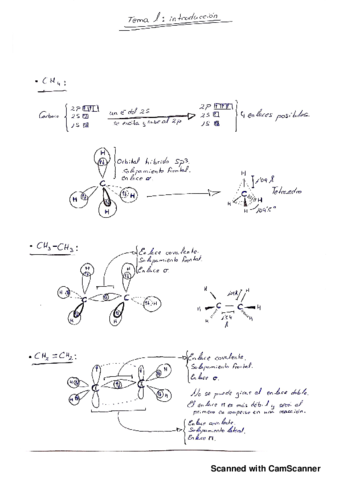 Tema 1: introducción
• CH4:
Carbono
2P
2S
1S
un e- del 2S
se excita y sube al 2p
2P
2S
1S
4 enlaces posibles.
Orbital híbrido sp3.
Solapamiento frontal.
Enlace σ
H
C
H
H
H
H
C
H
H
H
Tetraedro
• CH3-CH3:
Enlace covalente.
Solapamiento frontal.
Enlace σ.
H
H
H
C
C
H
H
H
H
C
C
H
• CH2=CH2:
Enlace covalente.
Solapamiento frontal.
Enlace σ.
H
C
C
H
H
H
No se puede girar el enlace doble.
El enlace π es más débil y será el
primero en romperse en una reacción.
Enlace covalente.
Solapamiento lateral.
Enlace π.
Scanned with CamScanner